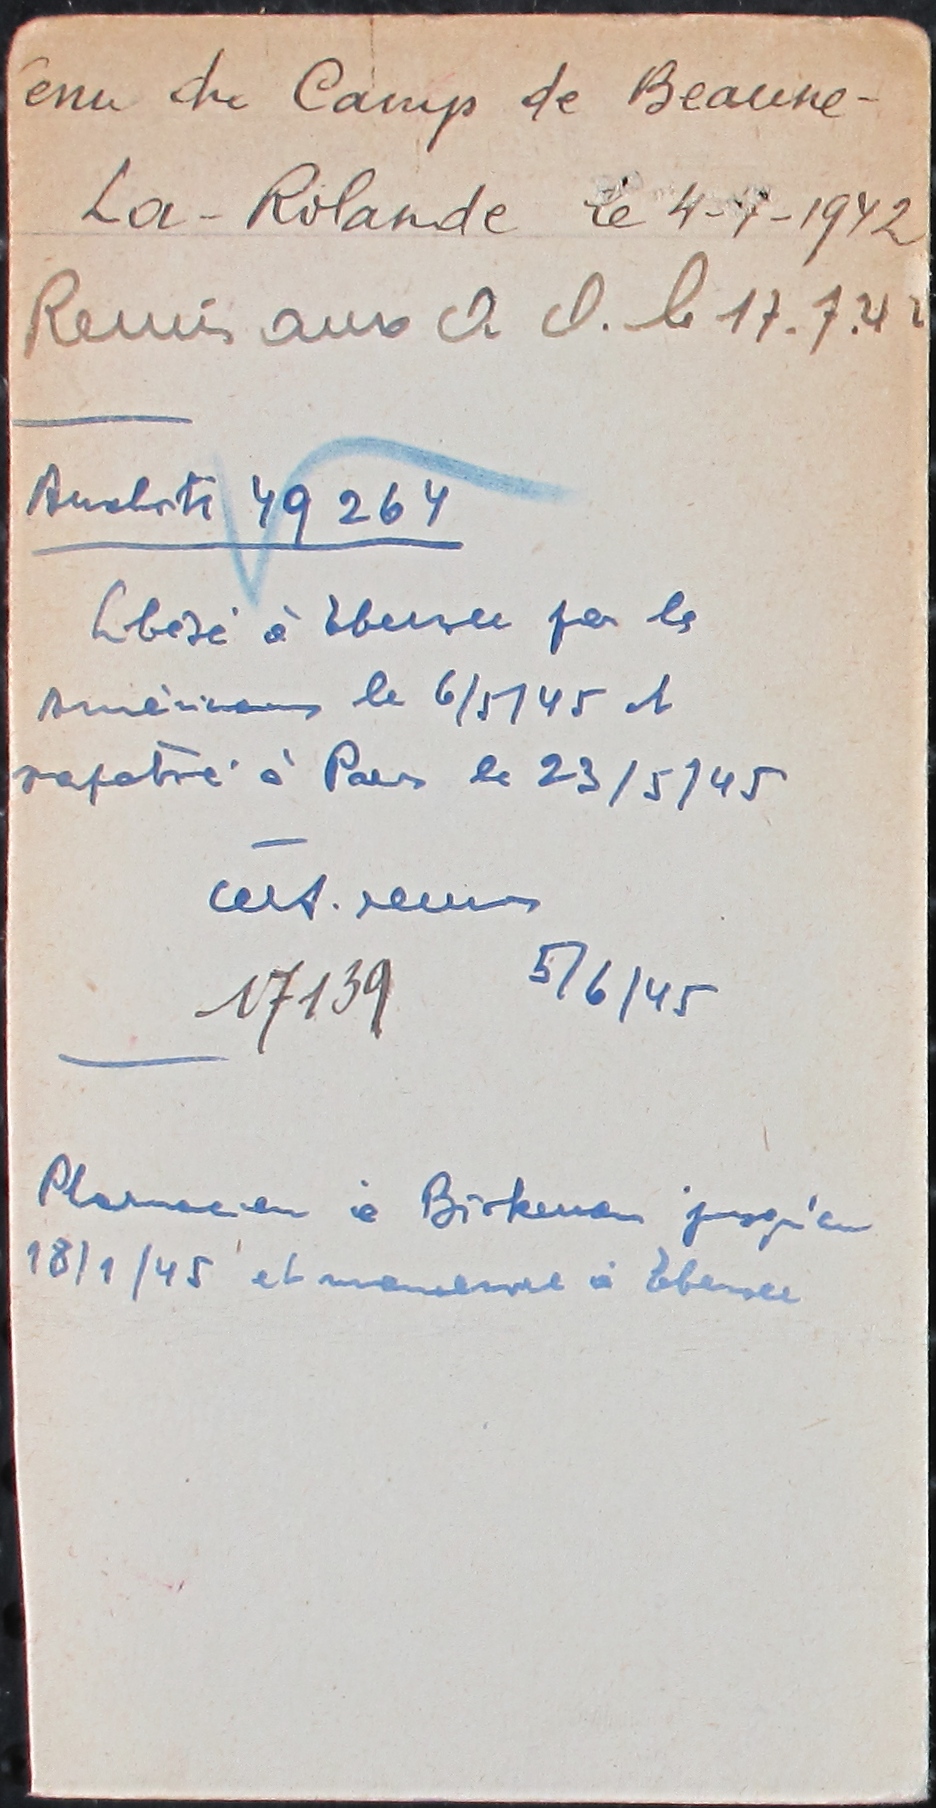 enu du Camp de Beaune-
La-Rolande le 4-7-1942
Remis aux A. A. le 17.7.42
Auschwitz 49264
Libéré à Ebensee par les
Américains le 6/5/45 et
rapatrié à Paris le 23/5/45
Cert. remis
17139 5/6/45
Pharmacien à Birkenau jusqu'au
18/1/45 et manoeuvre à Ebensee